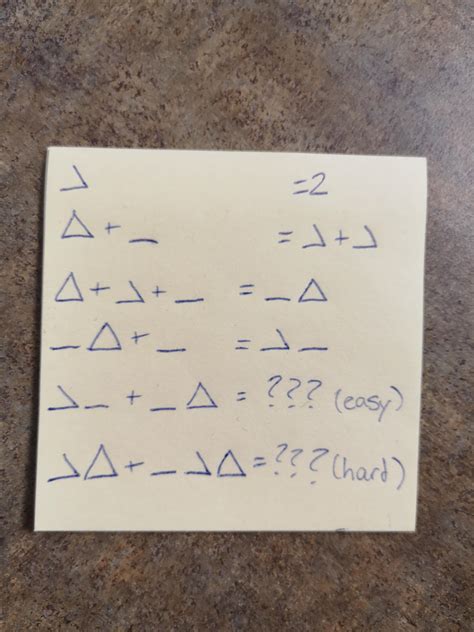 ⦣ =2
△ + _ = ⦣ + ⦣
△ + ⦣ + _ = _ △
_ △ + _ = ⦣ _
⦣ _ + _ △ = ??? (easy)
⦣ △ + _ ⦣ △ = ??? (hard)